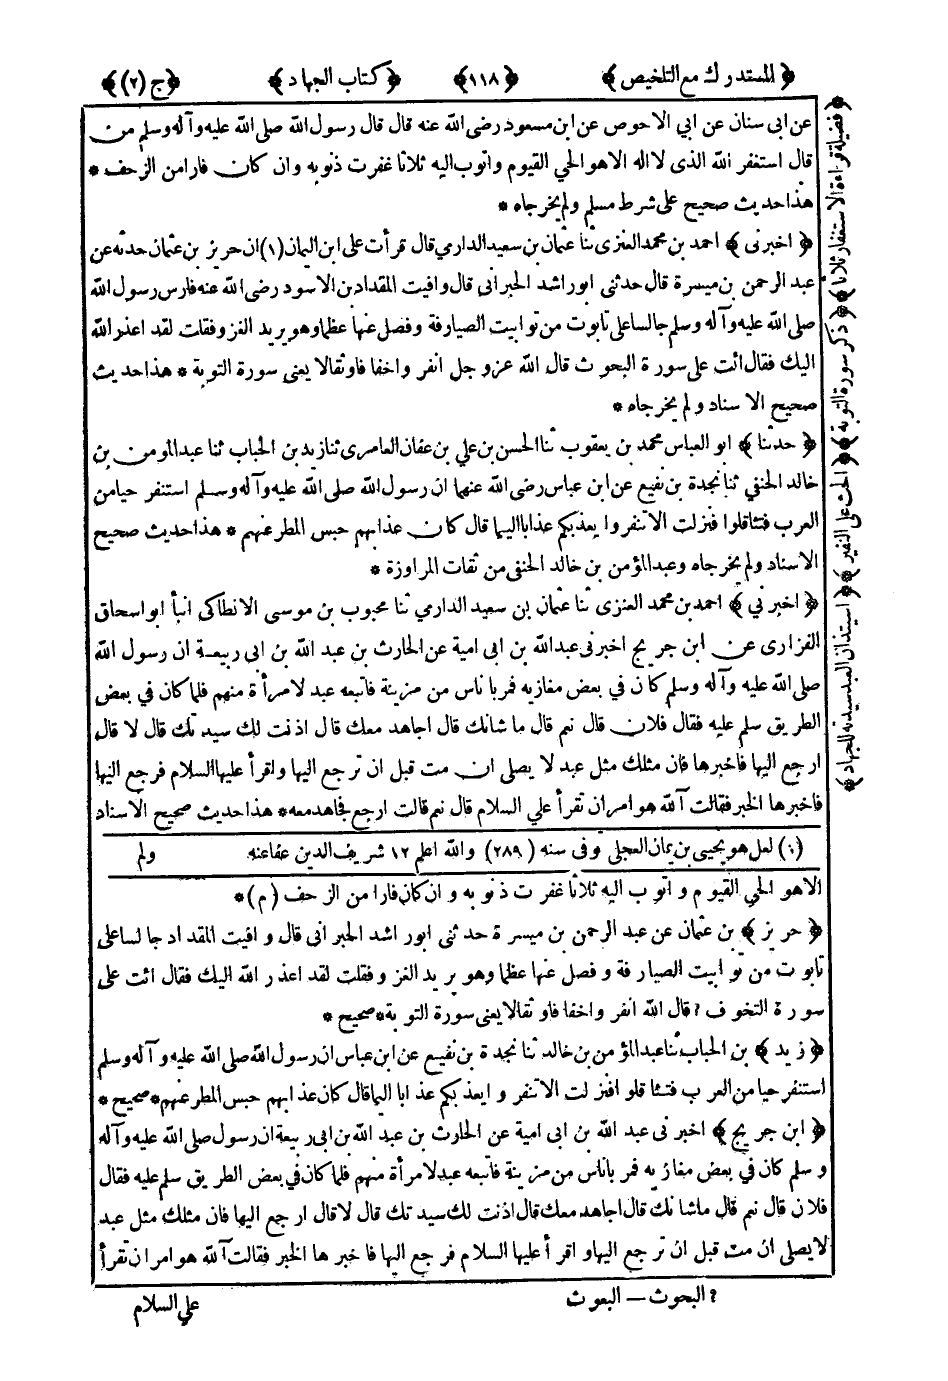 ﴿ المستدرك مع التلخيص ﴾ ﴿ ١١٨ ﴾ ﴿ كتاب الجهاد ﴾ ﴿ ج (٢) ﴾
عن ابى سنان عن ابي الاحوص عن ابن مسعود رضى الله عنه قال قال رسول الله صلى الله عليه وآله وسلم من
قال استغفر الله الذى لا اله الا هو الحي القيوم واتوب اليه ثلاثا غفرت ذنوبه وان كان فارا من الزحف *
هذا حديث صحيح على شرط مسلم ولم يخرجاه *
﴿ اخبرنى ﴾ احمد بن محمد العنزى ثنا عثمان بن سعيد الدارمي قال قرأت على ابن اليمان (١) ان حريز بن عثمان حدثه عن
عبد الرحمن بن ميسرة قال حدثني ابو راشد الحبراني قال وافيت المقداد بن الاسود رضى الله عنه فارس رسول الله
صلى الله عليه وآله وسلم جالسا على تابوت من توابيت الصيارفة وفصل عنها عظما وهو يريد الغزو فقلت لقد اعذر الله
اليك فقال ائت على سورة البحوث قال الله عز وجل انفروا خفافا وثقالا يعنى سورة التوبة * هذا حديث
صحيح الاسناد ولم يخرجاه *
﴿ حدثنا ﴾ ابو العباس محمد بن يعقوب ثنا الحسن بن علي بن عفان العامرى ثنا زيد بن الحباب ثنا عبد المومن بن
خالد الحنفي ثنا نجدة بن نفيع عن ابن عباس رضى الله عنهما ان رسول الله صلى الله عليه وآله وسلم استنفر حيا من
العرب فتثاقلوا فنزلت الا تنفروا يعذبكم عذابا اليما قال كان عذابهم حبس المطر عنهم * هذا حديث صحيح
الاسناد ولم يخرجاه وعبد المؤمن بن خالد الحنفى من ثقات المراوزة *
﴿ اخبرني ﴾ احمد بن محمد العنزى ثنا عثمان بن سعيد الدارمي ثنا محبوب بن موسى الانطاكى انبأ ابو اسحاق
الفزارى عن ابن جريج اخبرنى عبد الله بن ابى امية عن الحارث بن عبد الله بن ابى ربيعة ان رسول الله
صلى الله عليه وآله وسلم كان في بعض مغازيه فمر باناس من مزينة فاتبعه عبد لامرأة منهم فلما كان في بعض
الطريق سلم عليه فقال فلان قال نعم قال ما شانك قال اجاهد معك قال اذنت لك سيدتك قال لا قال
ارجع اليها فاخبرها فان مثلك مثل عبد لا يصلى ان مت قبل ان ترجع اليها واقرأ عليها السلام فرجع اليها
فاخبرها الخبر فقالت آلله هو امر ان تقرأ علي السلام قال نعم قالت ارجع فجاهد معه * هذا حديث صحيح الاسناد
(١) لعل هو يحيى بن يمان العجلي وفى سنه (٢٨٩) والله اعلم ١٢ شريف الدين عفا عنه ولم
الا هو الحي القيوم واتوب اليه ثلاثا غفرت ذنوبه وان كان فارا من الزحف (م) *
﴿ حريز ﴾ بن عثمان عن عبد الرحمن بن ميسرة حدثنى ابو راشد الحبرانى قال وافيت المقداد جالسا على
تابوت من توابيت الصيارفة وفصل عنها عظما وهو يريد الغزو فقلت لقد اعذر الله اليك فقال ائت على
سورة التخوف ? قال الله انفروا خفافا وثقالا يعنى سورة التوبة * صحيح *
﴿ زيد ﴾ بن الحباب ثنا عبد المؤمن بن خالد ثنا نجدة بن نفيع عن ابن عباس ان رسول الله صلى الله عليه وآله وسلم
استنفر حيا من العرب فتثاقلوا فنزلت الا تنفروا يعذبكم عذابا اليما قال كان عذابهم حبس المطر عنهم * صحيح *
﴿ ابن جريج ﴾ اخبرنى عبد الله بن ابى امية عن الحارث بن عبد الله بن ابى ربيعة ان رسول صلى الله عليه وآله
وسلم كان في بعض مغازيه فمر باناس من مزينة فاتبعه عبد لامرأة منهم فلما كان في بعض الطريق سلم عليه فقال
فلان قال نعم قال ما شانك قال اجاهد معك قال اذنت لك سيدتك قال لا قال ارجع اليها فان مثلك مثل عبد
لا يصلى ان مت قبل ان ترجع اليها واقرأ عليها السلام فرجع اليها فاخبرها الخبر فقالت آلله هو امر ان تقرأ
? البحوث — البعوث علي السلام
﴿ فضيلة قراءة الاستغفار ثلاثا ﴾ ﴿ ذكر سورة التوبة ﴾ ﴿ الحث على النفير ﴾ ﴿ استيذان العبد سيدته للجهاد ﴾